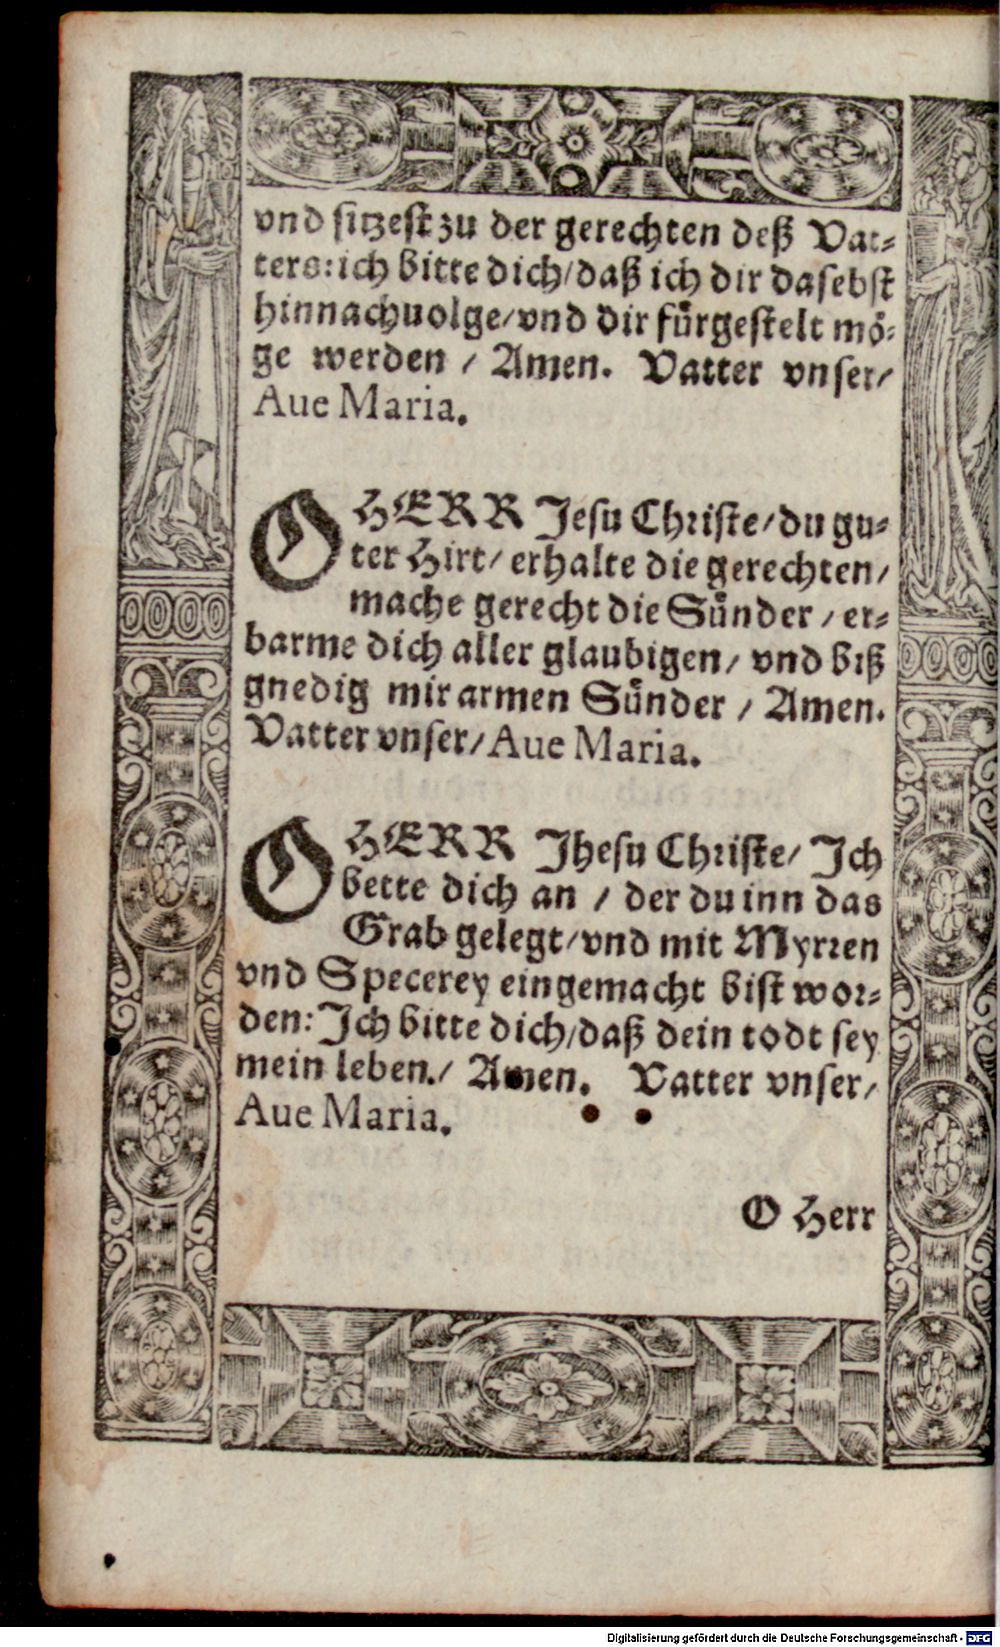 vnd sitzest zu der gerechten deß Vat-
ters: ich bitte dich/ daß ich dir dasebst
hinnachuolge/ vnd dir fuͤrgestelt moͤ-
ge werden / Amen. Vatter vnser/
Aue Maria.
O HERR Jesu Christe/ du gu-
ter Hirt/ erhalte die gerechten/
mache gerecht die Suͤnder / er-
barme dich aller glaubigen/ vnd biß
gnedig mir armen Suͤnder / Amen.
Vatter vnser/ Aue Maria.
O HERR Jhesu Christe/ Ich
bette dich an / der du inn das
Grab gelegt/ vnd mit Myrren
vnd Specerey eingemacht bist wor-
den: Ich bitte dich/ daß dein todt sey
mein leben./ Amen. Vatter vnser/
Aue Maria.
O Herr
Digitalisierung gefördert durch die Deutsche Forschungsgemeinschaft - DFG